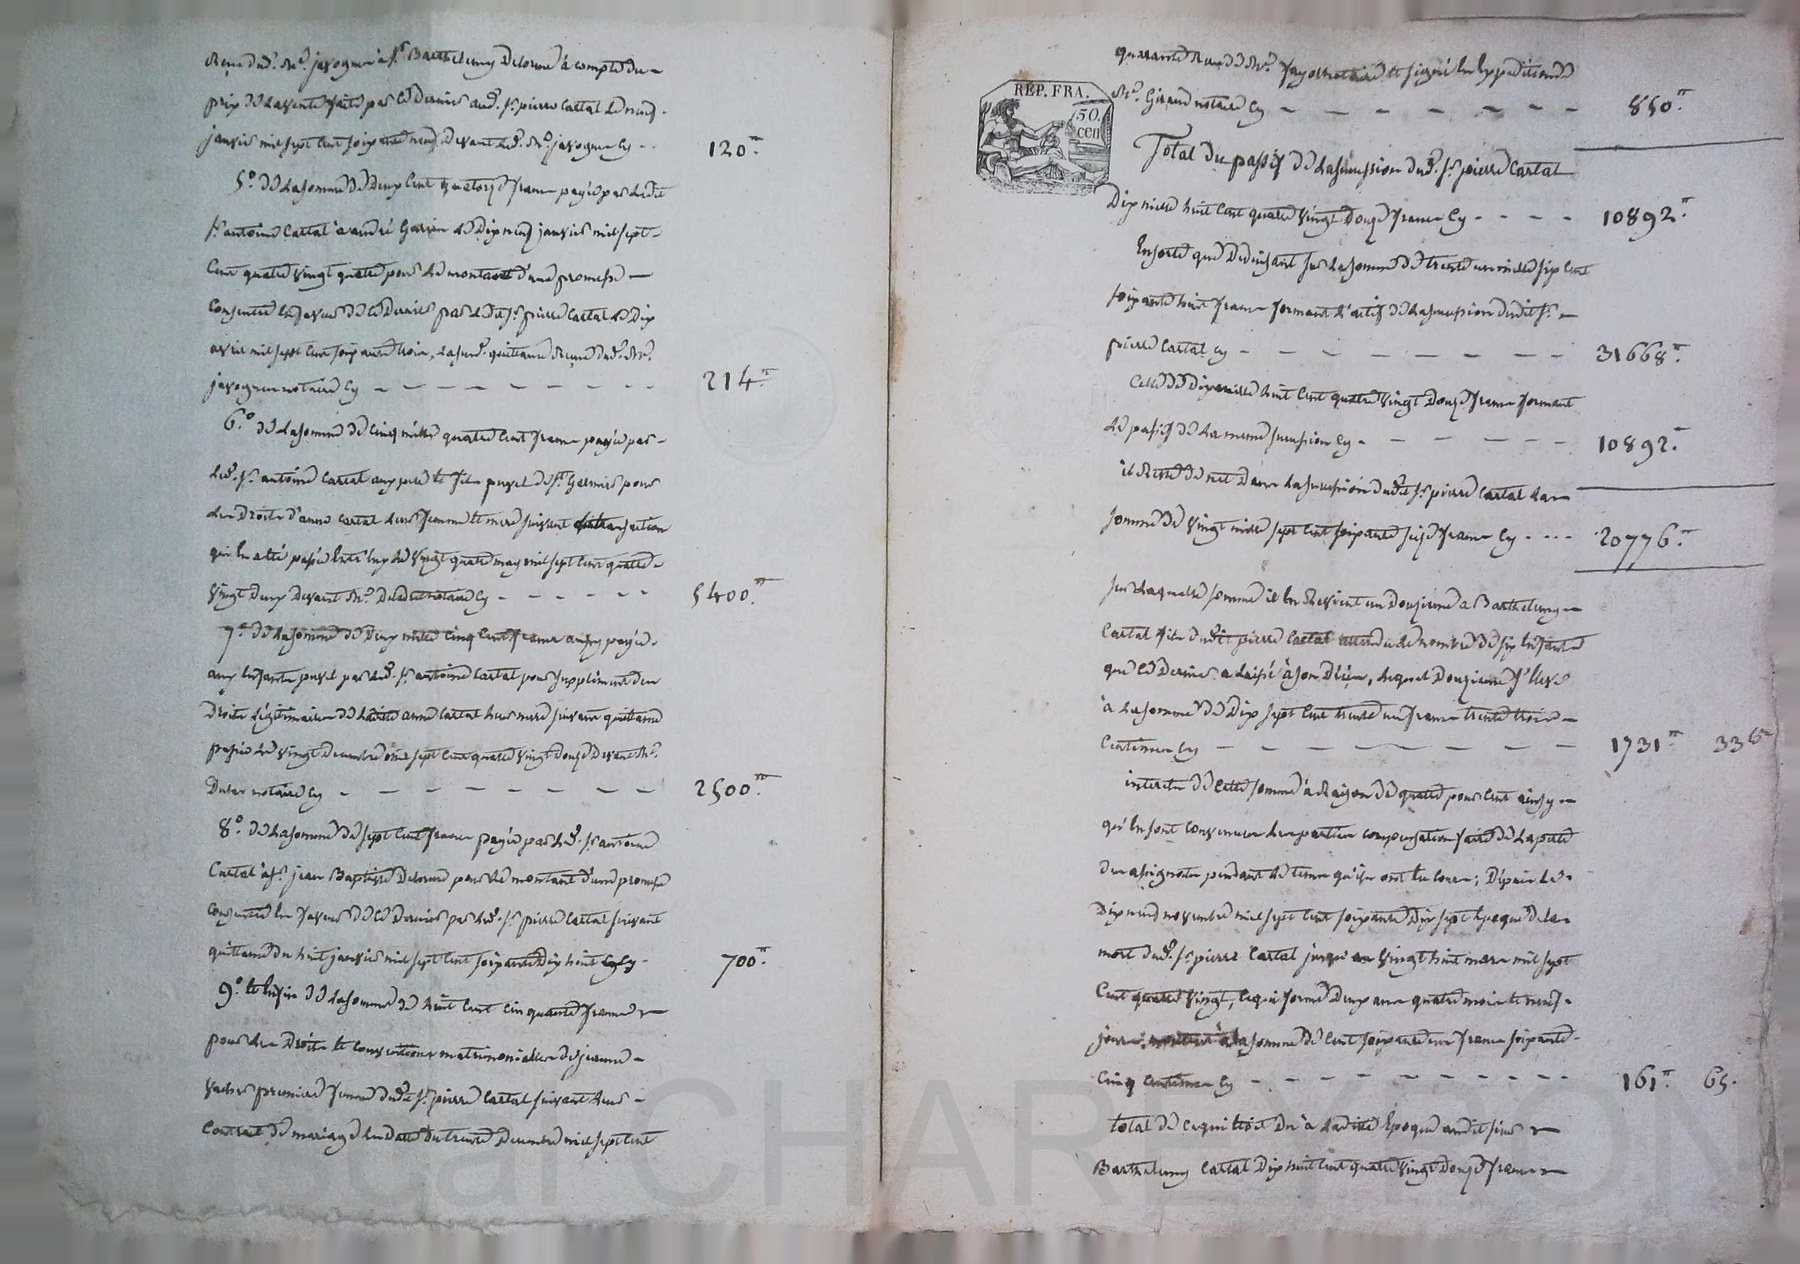 Reçu dud. Me. javogue à Sr. Barthelemy Delorme à compte du
prix de la vente faite par ce dernier aud. Sr. pierre Cartal le neuf
janvier mil sept cent soixante neuf Devant led. Me. javogue Cy - - 120.tt
5°. de la somme de Deux Cent quatorze francs payée par ledit
Sr. antoine Cartal à andré le Dix neuf janvier mil sept
Cent quatre vingt quatre pour le montant d'une promesse
Consentie en faveur de ce Dernier par ledit Sr. pierre Cartal le Dix
avril mil sept Cent soixante trois, lad. quittance Reçue dud. Me.
javogue notaire Cy - - - - - - - - 214.tt
6°. de la somme de Cinq mille quatre Cent francs payée par
led. Sr. antoine Cartal aux pere et fils puvel de St. Germier pour
les Droits d'anne Cartal leur femme et mere suivant transaction
qui en a été passée entr'eux le vingt quatre may mil sept Cent quatre
vingt Deux Devant Me. notaire Cy - - - - - - 5400.tt
7°. de la somme de Deux mille Cinq Cent francs aussy payée
aux Enfants puvel par led. Sr. antoine Cartal pour supplément des
Droits Légitimaires de ladite anne Cartal leur mere suivant quittance
passée le vingt Decembre mil sept Cent quatre vingt Douze Devant Me.
Dubar notaire Cy - - - - - - - - 2500.tt
8°. de la somme de sept Cent francs payée par led. Sr. antoine
Cartal à Sr. jean Baptiste Delorme pour le montant d'une promesse
Consentie en faveur de ce Dernier par led. Sr. pierre Cartal suivant
quittance du huit janvier mil sept Cent soixante Dix huit Cy - 700.tt
9°. et enfin de la somme de huit Cent Cinquante francs
pour les Droits et Conventions matrimonialles de jeanne
vacher premiere femme dudit Sr. pierre Cartal suivant leur
Contrat de mariage en Date du trente Decembre mil sept Cent
quarante Reçu de Me. notaire et signé en Expedition de
Me. Giraud notaire Cy - - - - - - - 850.tt
REP. FRA.
50.
cen
Total du passif de la succession dud. Sr. pierre Cartal
Dix mille huit Cent quatre vingt Douze francs Cy - - - - 10892.tt
En sorte que Deduisant sur la somme de trente un mille six Cent
soixante huit francs formant l'actif de la succession dudit Sr.
pierre Cartal cy - - - - - - - - 31668.tt
Celle de Dix mille huit Cent quatre vingt Douze francs formant
le passif de la meme succession Cy - - - - - - 10892.tt
il Reste de net Dans la succession dudit Sr. pierre Cartal la
somme de vingt mille sept Cent soixante seize francs Cy - - - - 20776.tt
sur laquelle somme il en Revient un Douzieme a Barthelemy
Cartal fils dudit pierre Cartal attendu le nombre de six Enfants
que ce Dernier a laissé à son Décès, lequel Douzieme s'Eleve
à la somme de Dix sept Cent trente un francs trente trois
Centimes Cy - - - - - - - - 1731.tt 33 c.
interets de cette somme à Raison de quatre pour Cent ainsy
qu'en sont convenues les parties compensation faite de la perte
des assignats pendant le temps qu'ils ont Eu Cours; Depuis le
Dix neuf novembre mil sept Cent soixante Dix sept Epoque de la
mort dud. Sr. pierre Cartal jusqu'au vingt huit mars mil sept
Cent quatre vingt, ce qui forme Deux ans quatre mois et neuf
jours, la somme de Cent soixante un francs soixante
Cinq Centimes Cy - - - - - - - - 161.tt 65.
total de ce qui Etoit Dû à ladite Epoque audit sieur
Barthelemy Cartal Dix huit Cent quatre vingt Douze francs